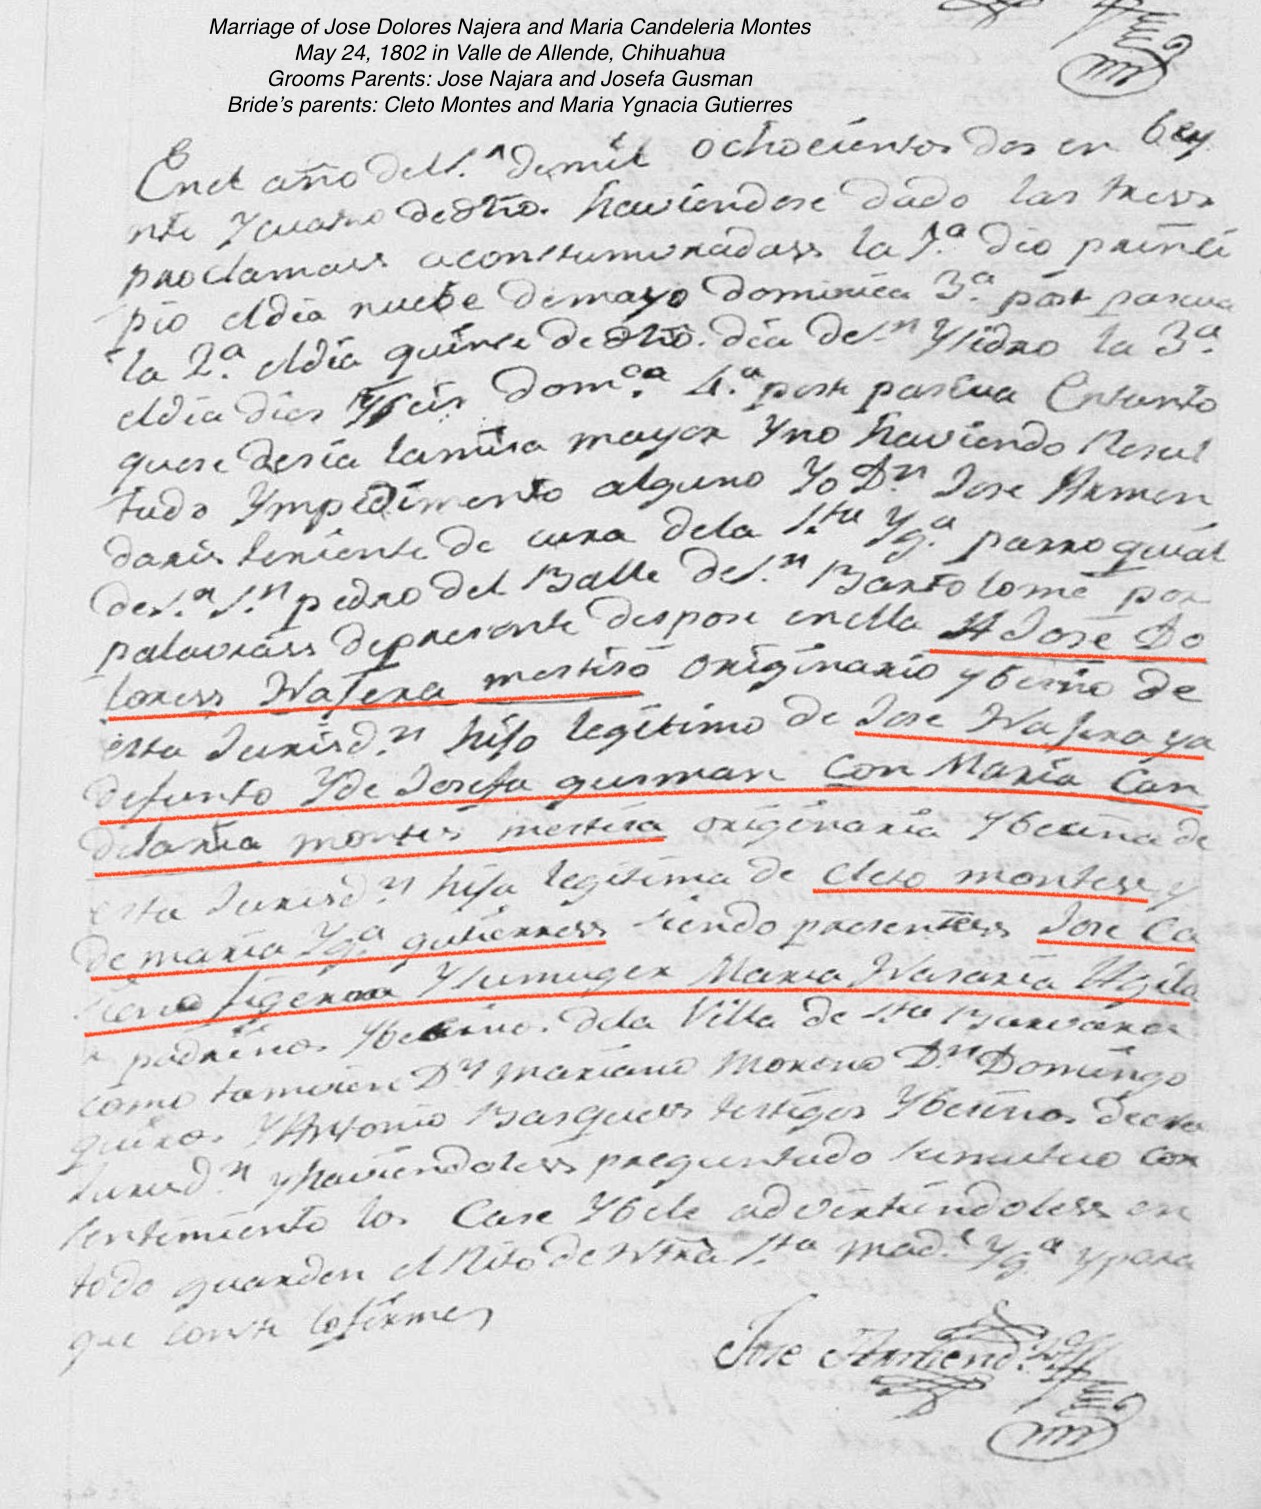 Marriage of Jose Dolores Najera and Maria Candeleria Montes
May 24, 1802 in Valle de Allende, Chihuahua
Grooms Parents: Jose Najara and Josefa Gusman
Bride's parents: Cleto Montes and Maria Ygnacia Gutierres
En el año del S.r de mil ochocientos dos en bey
nte y cuatro de dho. haviendose dado las tress
proclamass aconstumvradass la 1.a dio prinsi
pio el dia nuebe de mayo dominica 3.a post pascua
la 2.a el dia quinse de dho. dia de S.n Ysidro la 3.a
el dia dies y seis dom.ca 4.a post pascua En tanto
que se desia la misa mayor y no haviendo Resul
tado Ympedimento alguno Yo D.n Jose Armen
daris teniente de cura de la S.ta Yg.a parroquial
de S.r S.n pedro del Balle de S.n Bartolome por
palavrass de presente despose en ella A Jose Do
loress Najera mestiso originario y besino de
esta Jurisd.n hijo legitimo de Jose Najera ya
defunto y de Josefa gusman con Maria Can
delaria montes mestisa originaria y besina de
esta Jurisd.n hija legitima de cleto montess y
de maria Yg.a gutierress siendo presentess Jose Ca
y su muger Maria Nasaria Agila
padrinos y besinos de la Villa de S.ta Barvara
como tamvien D.n Mariano Moreno D.n Domingo
quiros y Antonio Basquess testigos y besinos de esta
Jurisd.n y haviendoless preguntado su mutuo con
sentimiento los Case y bele advirtiendoless en
todo guarden el Rito de Ntra S.ta mad.e Yg.a y para
que conste lo firme
Jose Armend.s